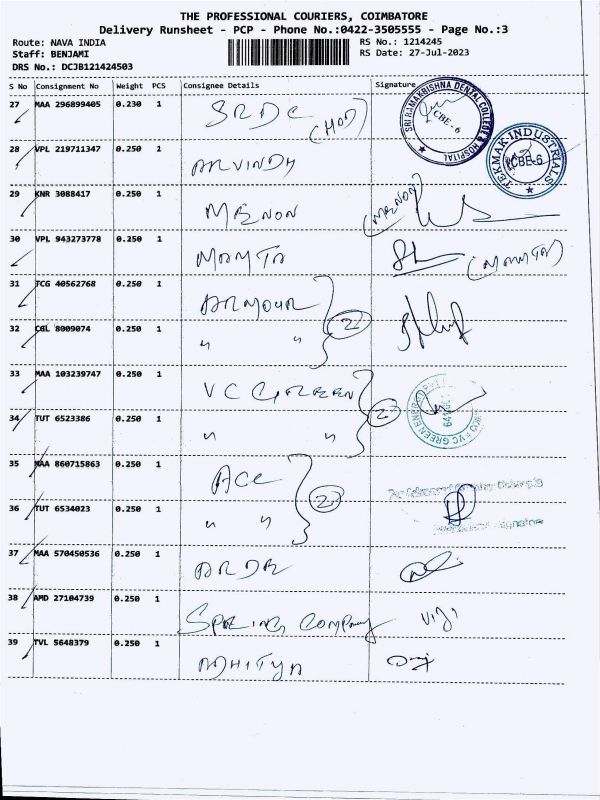 THE PROFESSIONAL COURIERS, COIMBATORE
Delivery Runsheet - PCP - Phone No.:0422-3505555 - Page No.:3
Route: NAVA INDIA
Staff: BENJAMI
DRS No.: DCJB121424503
RS No.: 1214245
RS Date: 27-Jul-2023
S No Consignment No Weight PCS Consignee Details Signature
27 MAA 296899405 0.230 1 SRDC (HOD)
SRI RAMAKRISHNA DENTAL COLLEGE & HOSPITAL CBE-6
28 VPL 219711347 0.250 1 ARVINDH
TEKMAK INDUSTRIALS CBE-6
29 KNR 3088417 0.250 1 MENON (MENON)
30 VPL 943273778 0.250 1 MAMTA (MAMTA)
31 TCG 40562768 0.250 1 ARMOUR
32 CGL 8009074 0.250 1 " "
33 MAA 103239747 0.250 1 VC GREEN
VC GREEN ENERGY
34 TUT 6523386 0.250 1 " "
35 MAA 860715863 0.250 1 ACE
36 TUT 6534023 0.250 1 " "
37 MAA 570450536 0.250 1
38 AMD 27104739 0.250 1 SPRING COMPANY Viji
39 TVL 5648379 0.250 1 ADHITYA